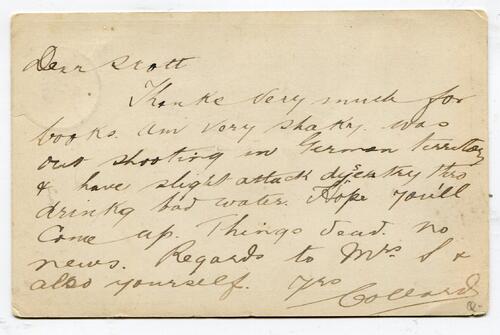 Dear Scott
Thanks very much for
books. Am very shaky. was
out shooting in German territory
& have slight attack dysentry thro
drinkg bad water. Hope you'll
Come up. Things dead. no
news. Regards to Mrs S &
also yourself. Yrs
Collard